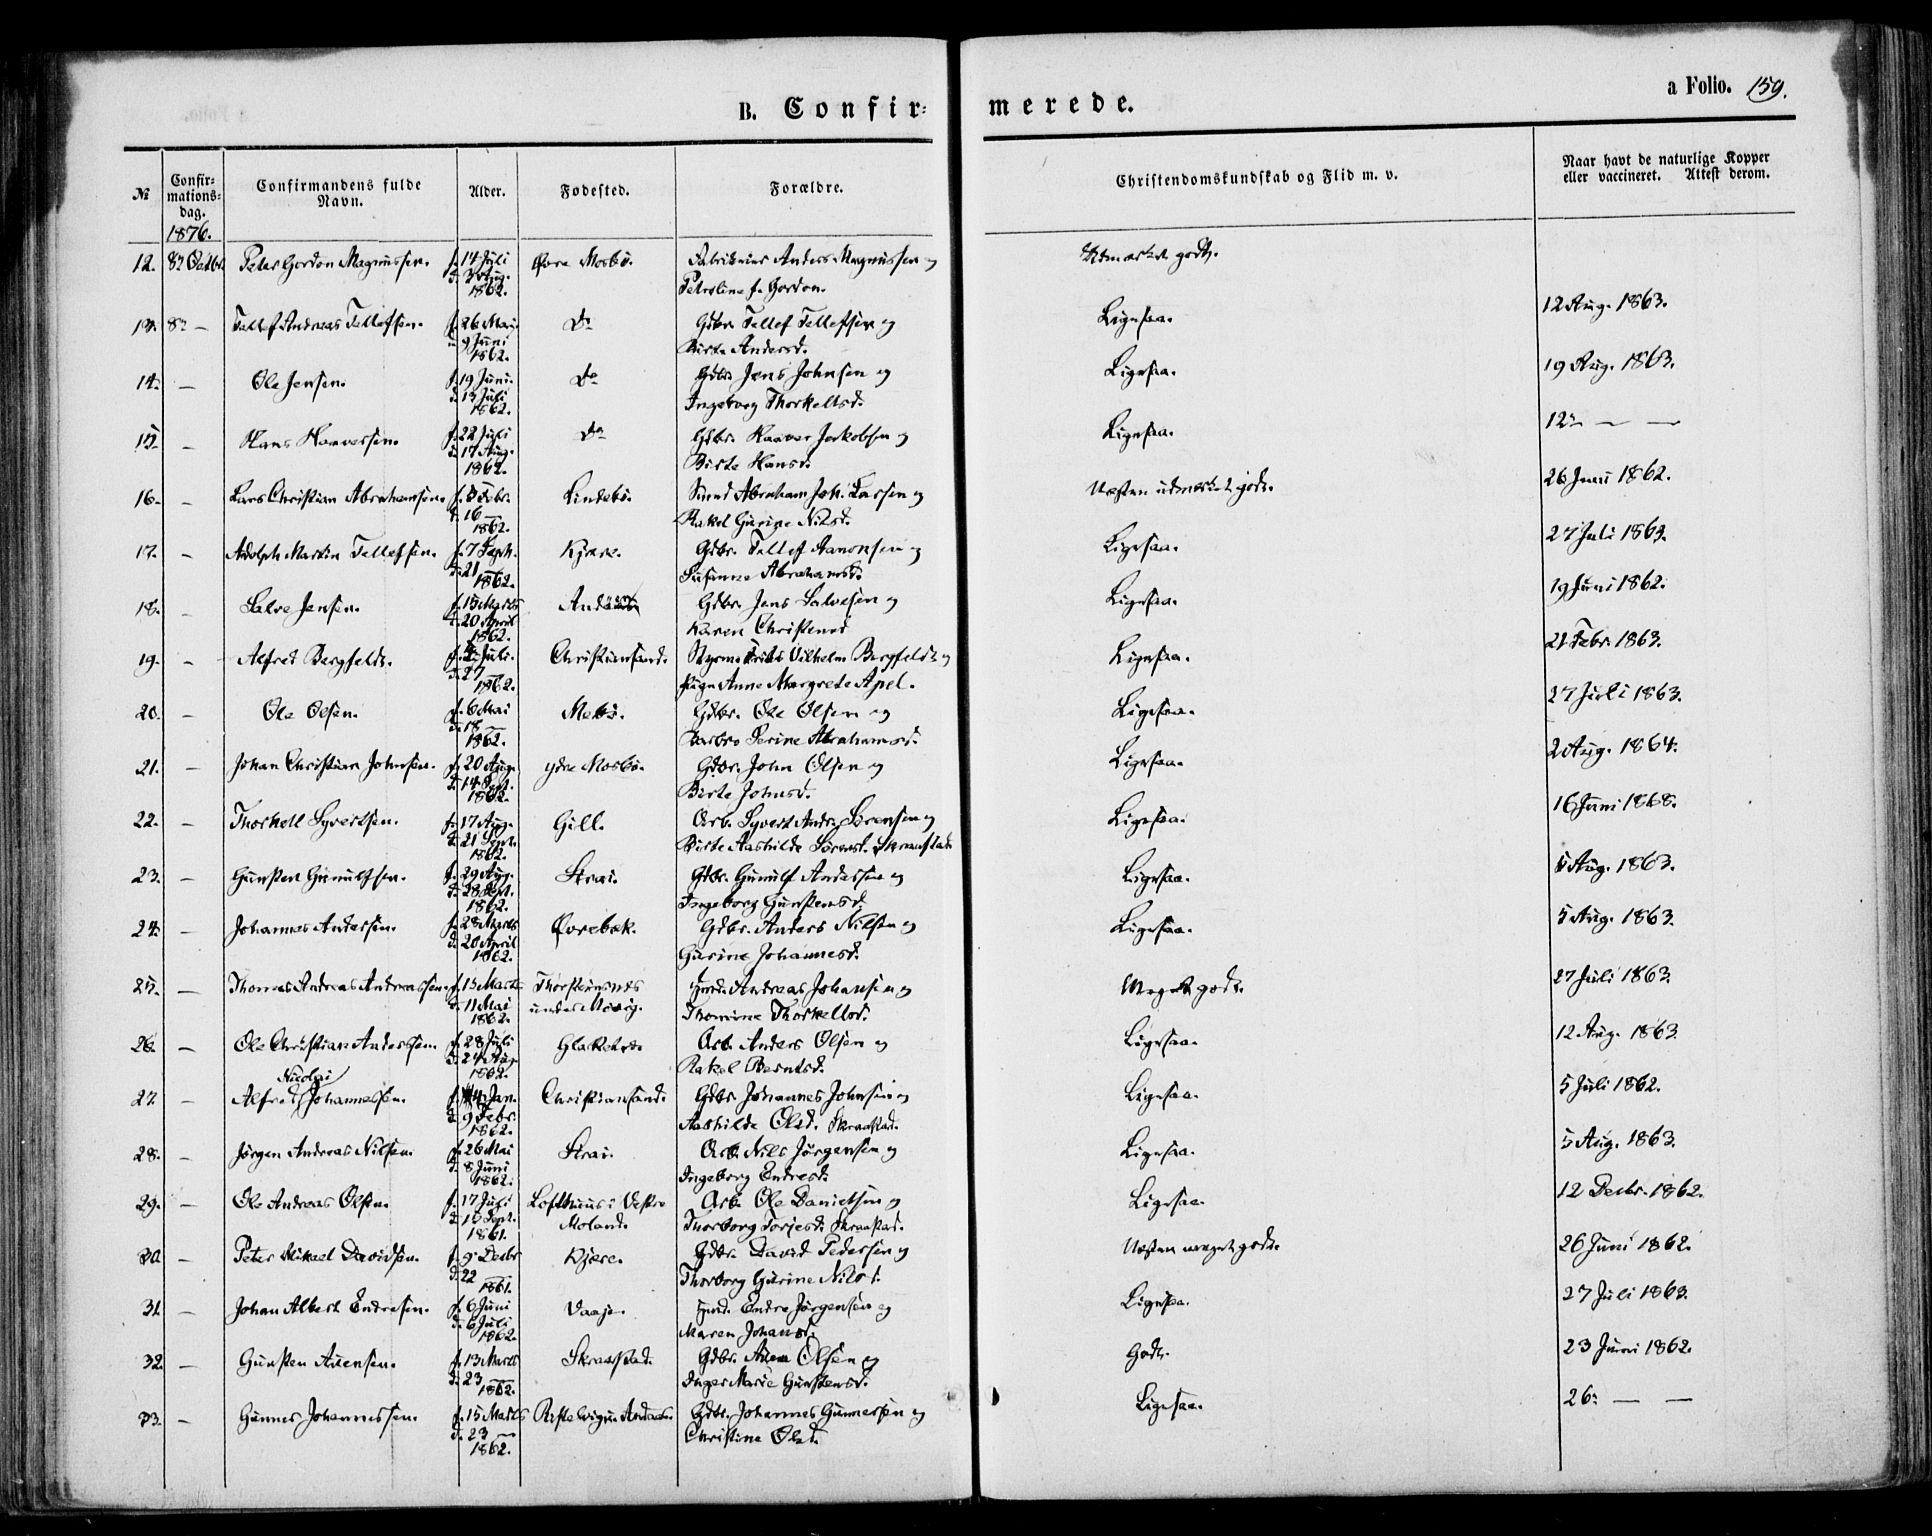 B. Confir-
merede.
a Folio. 159.
№
Confir-
mations-
dag.
Confirmandens fulde
Navn.
Alder.
Fødested.
Forældre.
Christendomskundskab og Flid m. v.
Naar havt de naturlige Kopper
eller vaccineret. Attest derom.
1876.
12. 8n Octbr Peter Gordon Magnussen. f. 14 Juli Øvre Mosbö. Anders Magnussen og Udmærket godt.
d. 3 Aug. Petroline f. Gordon.
1862.
13. 8n — Tellef Andreas Tellefsen. f. 26 Mai Do Gdbr. Tellef Tellefsen og Ligesaa. 12 Aug. 1863.
9 Juni Birte Andersd.
1862.
14. — Ole Jensen. f. 19 Juni. Do Gdbr. Jens Johnsen og Ligesaa. 19 Aug. 1863.
d. 13 Juli Ingeborg Thorkelsd.
1862.
15. — Hans Haaversen. f. 22 Juli Do Gdbr. Haaver Jakobsen og Ligesaa. 12 — —
d. 17 Aug. Birte Hansd.
1862.
16. — Lars Christian Abrahamsen. f. Febr. Lindebö. Abraham Joh. Larsen og Næsten udmærket godt. 26 Juni 1862.
d. 16 — Rakel Gurine Nilsd.
1862.
17. — Adolph Martin Tellefsen. f. 7 Septr. Kjære. Gdbr. Tellef Aanonsen og Ligesaa. 27 Juli 1863.
d. 21 — Susanne Abrahamsd.
1862.
18. — Salve Jensen. f. 15 Marts Gdbr. Jens Salvesen og Ligesaa. 19 Juni 1862.
d. 20 April Karen Christensd
1862.
19. — Alfred Bergfeldt. f. Juli. Christiansand. Styrmd Frits Vilhelm Bergfeldt og Ligesaa. 21 Febr. 1863.
d. 27 Pige Anne Margrete Apel.
1862.
20. — Ole Olsen. f. 6 Mai Mebö. Gdbr. Ole Olsen og Ligesaa. 27 Juli 1863.
d. 18 — Barbro Serine Abrahamsd.
1862.
21. — Johan Christian Johnsen. f. 20 Aug. ydre Mosbö. Gdbr. John Olsen og Ligesaa. 2 Aug. 1864.
d. 14 Sept. Birte Johnsd.
1862.
22. — Thorkell Syvertsen. f. 17 Aug. Gill. Arb. Syvert Andr. Sörensen og Ligesaa. 16 Juni 1868.
d. 21 Sept. Birte Aashilde Sörensd. Skraastad
1862.
23. — Gunsten Gunulfsen. f. 29 Aug. Strai. Gdbr. Gunulf Andersen og Ligesaa. 5 Aug. 1863.
d. 28 Sept. Ingeborg Gunstensd.
1862.
24. — Johannes Andersen. f. 28 Marts Øvrebök. Gdbr. Anders Nilsen og Ligesaa. 5 Aug. 1863.
d. 20 April Gurine Johannesd.
1862.
25. — Thomas Andreas Andreassen. f. 15 Marts Thorsteinsnes Hmd. Andreas Johansen og Meget godt. 27 Juli 1863.
d. 11 Mai under Mosvig. Thomine Thorkelsd.
1862.
26. — Ole Christian Andersen. f. 28 Juli Arb. Anders Olsen og Ligesaa. 12 Aug. 1863.
d. 24 Aug. Rakel Berntsd.
1862.
Nicolai
27. — Alfred Johannessen. f. 14 Jan. Christiansand. Gdbr. Johannes Johnsen og Ligesaa. 5 Juli 1862.
d. 9 Febr. Aashilde Olsd. Skraastad.
1862.
28. — Jørgen Andreas Nilsen. f. 26 Mai Strai. Arb. Nils Jørgensen og Ligesaa. 5 Aug. 1863.
d. 8 Juni Ingeborg Endresd.
1862.
29. — Ole Andreas Olsen. f. 17 Juli Lofthuus i Vestre Arb. Ole Danielsen og Ligesaa. 12 Decbr. 1862.
d. 15 Sept. Moland. Thorborg Torjesd. Skraastad.
1861.
30. — Peter Mikael Davidsen. f. 9 Decbr Kjære. Gdbr. David Pedersen og Næsten meget godt. 26 Juni 1862.
d. 22 — Thorborg Gurine Nilsd.
1861.
31. — Johan Albert Endresen. f. 6 Juni Vaaje. Hmd. Endre Jørgensen og Ligesaa. 27 Juli 1863.
d. 6 Juli Maren Johansd.
1862.
32. — Gunsten Auensen. f. 13 Marts Skraastad. Gdbr. Auen Olsen og Godt. 23 Juni 1862.
d. 23 — Inger Marie Gunstensd.
1862.
33. — Gunner Johannessen. f. 15 Marts Gdbr. Johannes Gunnersen og Ligesaa. 26 — —
d. 23 — Christine Olsd.
1862.